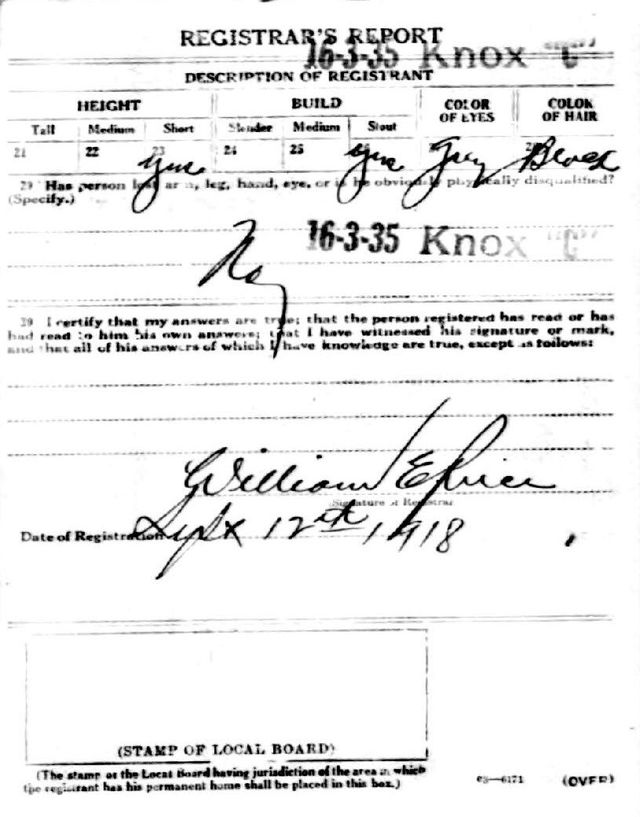 REGISTRAR'S REPORT
16-3-35 Knox "C"
DESCRIPTION OF REGISTRANT
HEIGHT BUILD COLOR OF EYES COLOR OF HAIR
Tall Medium Short Slender Medium Stout
21 22 23 24 25
Yes Yes Grey Black
29 Has person lost arm, leg, hand, eye, or is he obviously physically disqualified?
(Specify.)
16-3-35 Knox "C"
No
30 I certify that my answers are true; that the person registered has read or has
had read to him his own answers; that I have witnessed his signature or mark,
and that all of his answers of which I have knowledge are true, except as follows:
William E
Signature of Registrar
Date of Registration Sept 12th, 1918
(STAMP OF LOCAL BOARD)
(The stamp of the Local Board having jurisdiction of the area in which
the registrant has his permanent home shall be placed in this box.)
03—6171 (OVER)